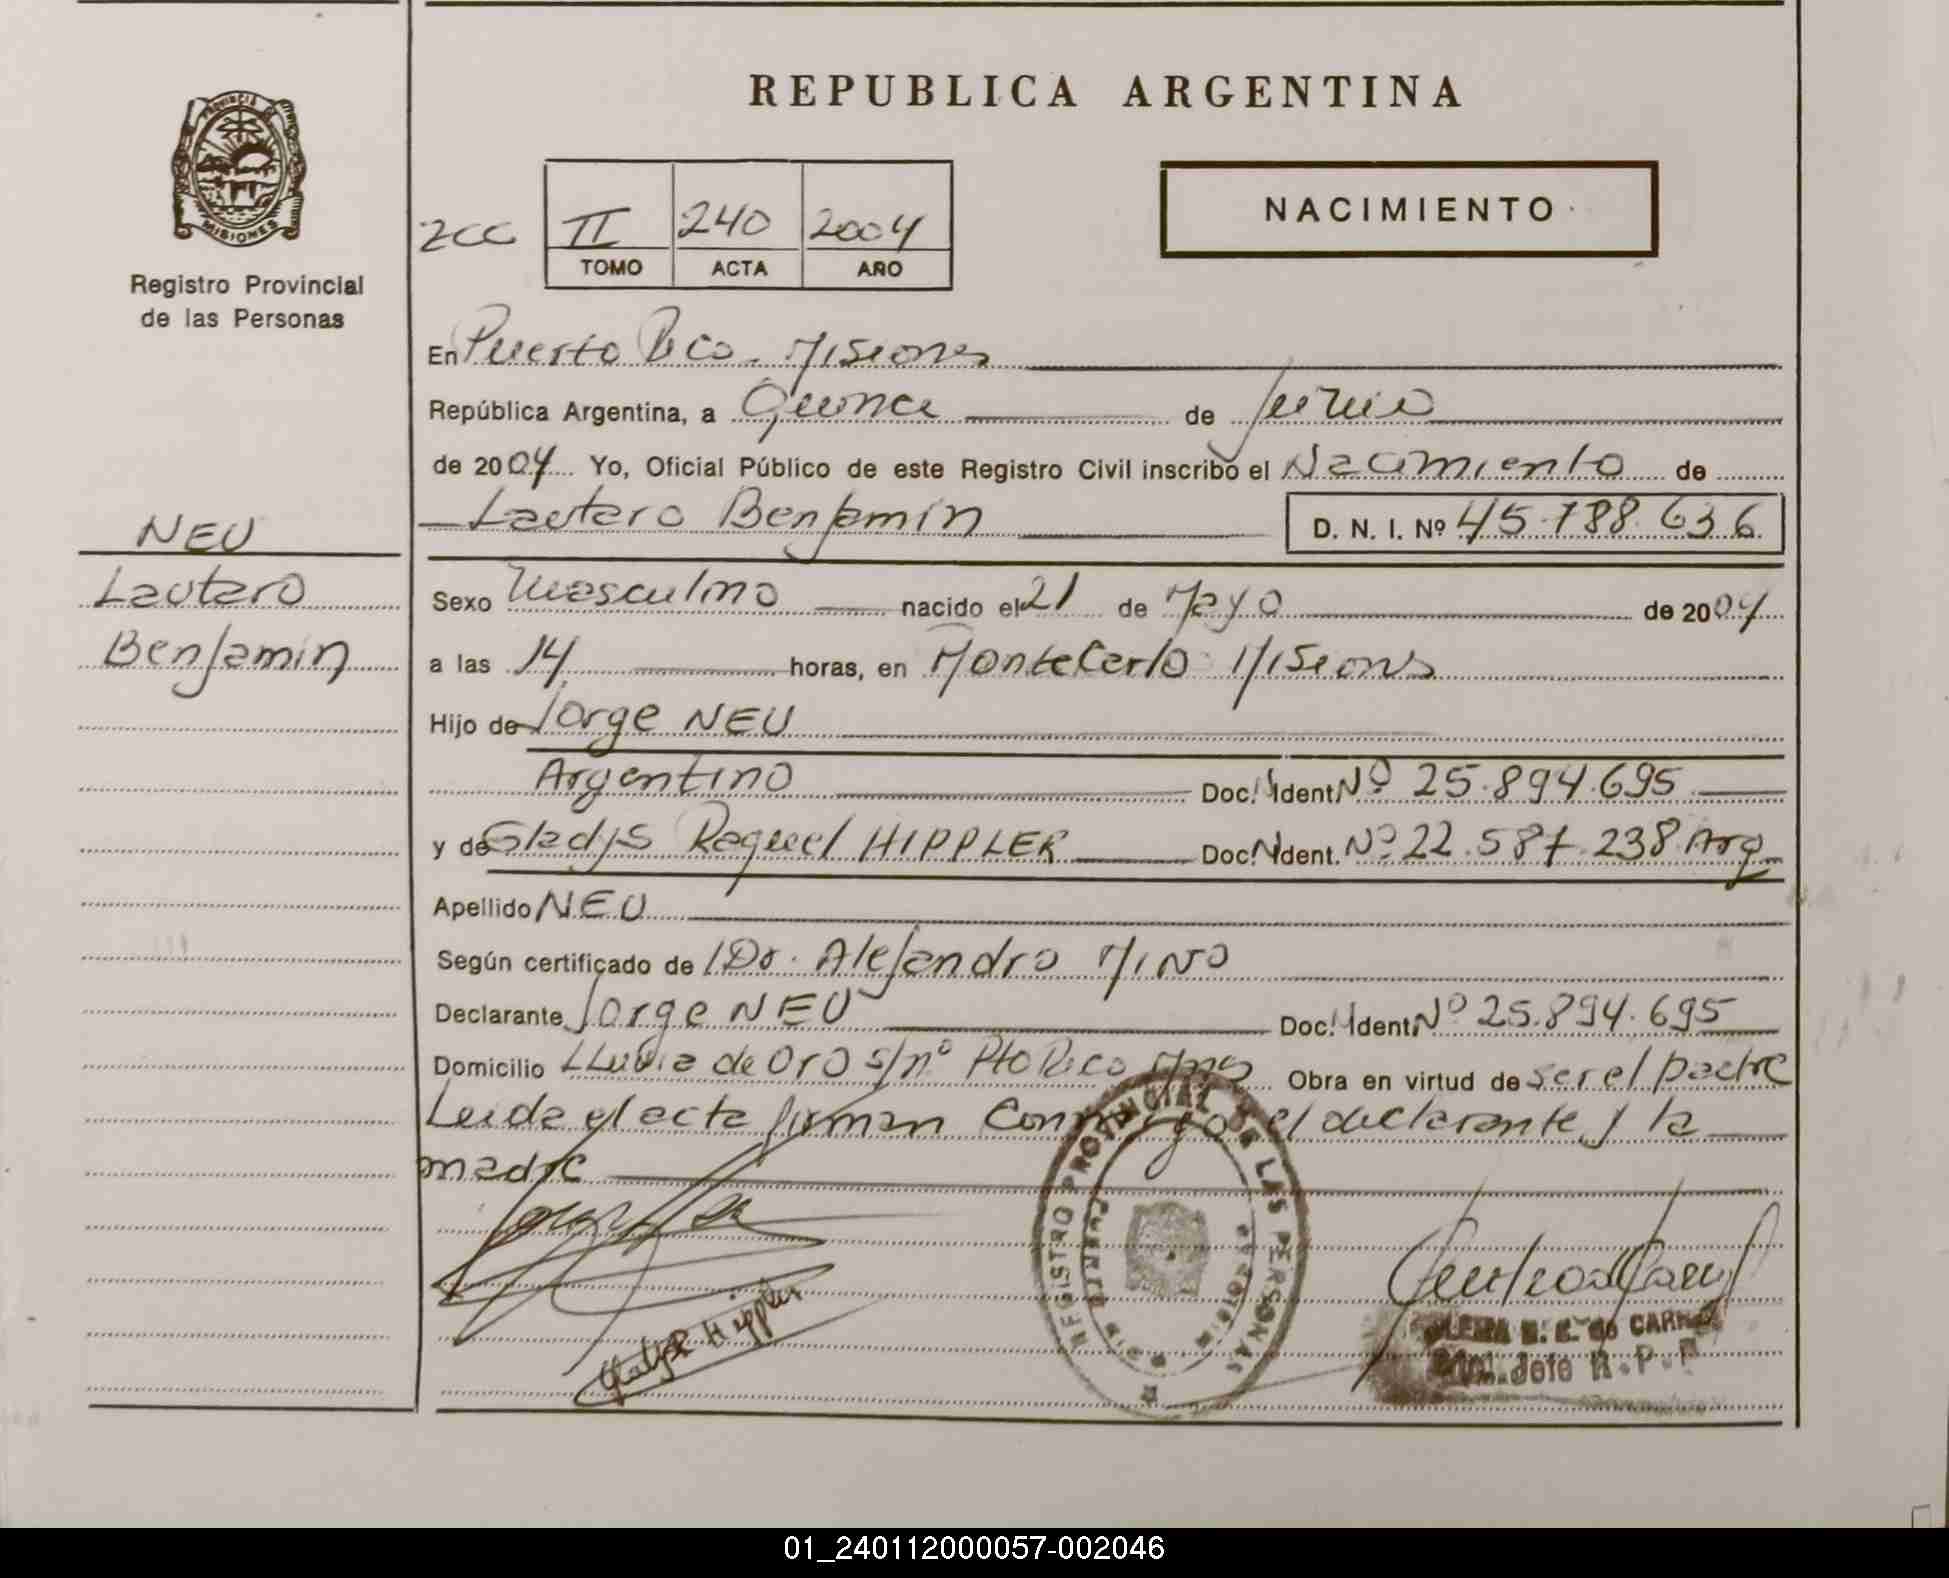 REPUBLICA ARGENTINA
PROVINCIA DE
MISIONES
Registro Provincial
de las Personas
NACIMIENTO
II 240 2004
TOMO ACTA AÑO
En Puerto Rico. Misiones
República Argentina, a Quince de Junio
de 2004 Yo, Oficial Público de este Registro Civil inscribo el Nacimiento de
Lautaro Benjamín
D. N. I. Nº 45.788.636
NEU
Lautaro
Benjamín
Sexo Masculino nacido el 21 de Mayo de 2004
a las 14 horas, en Montecarlo Misiones
Hijo de Jorge NEU
Argentino Doc. Ident. Nº 25.894.695
y de Gladys Raquel HIPPLER Doc. Ident. Nº 22.587.238 Arg
Apellido NEU
Según certificado de Dr. Alejandro MINO
Declarante Jorge NEU Doc. Ident. Nº 25.894.695
Domicilio LLuvia de Oro s/nº Pto Rico Mnes Obra en virtud de ser el padre
Leida el acta firman Conmigo el declarante y la
madre
REGISTRO PROVINCIAL DE LAS PERSONAS
Gladys R Hippler
01_240112000057-002046